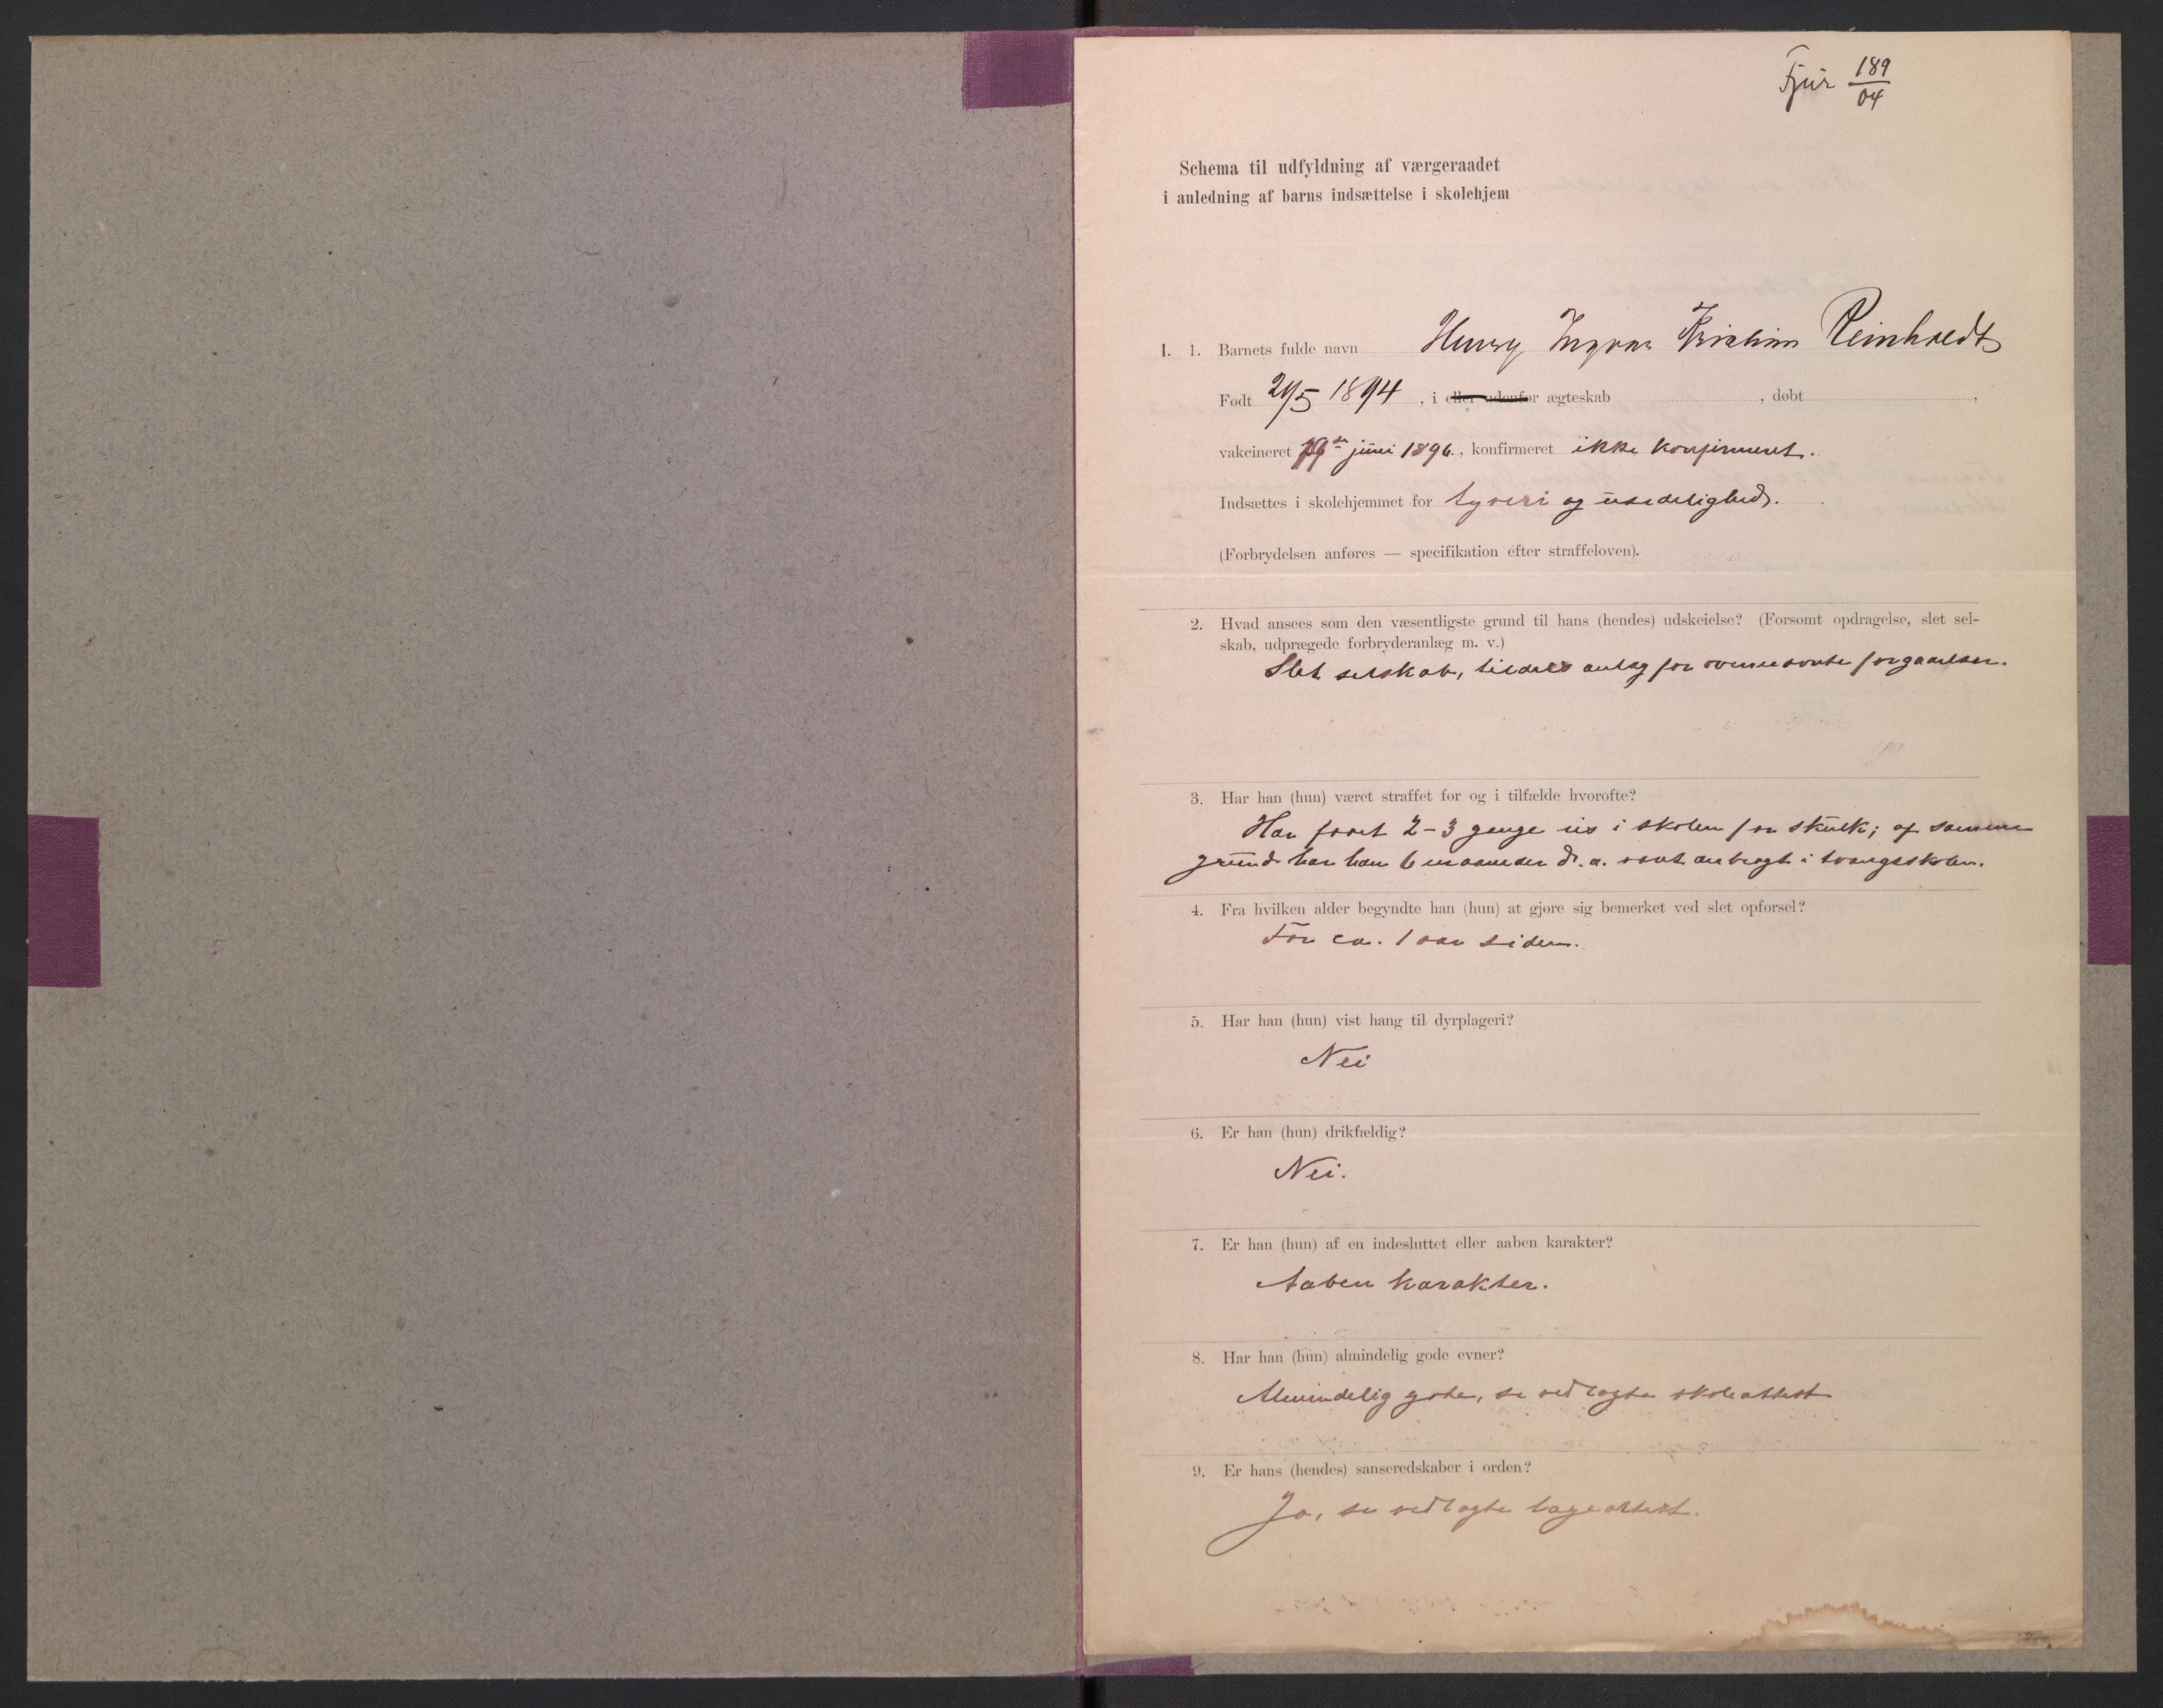 Fjur 189/04
Schema til udfyldning af værgeraadet
i anledning af barns indsættelse i skolehjem
I. 1. Barnets fulde navn Henry Ingvar Reinholdt
Født 21/5 1894, i eller udenfor ægteskab , døbt ,
vakcineret 19de juni 1896, konfirmeret ikke konfirmeret.
Indsættes i skolehjemmet for tyveri og usedelighed.
(Forbrydelsen anføres — specifikation efter straffeloven).
2. Hvad ansees som den væsentligste grund til hans (hendes) udskeielse? (Forsømt opdragelse, slet sel-
skab, udprægede forbryderanlæg m. v.)
Slet selskab, tildels anlæg for ovennævnte forgaaelser.
3. Har han (hun) været straffet før og i tilfælde hvorofte?
Har faaet 2-3 gange ris i skolen for skulk; af samme
grund har han 6 maaneder d. a. været anbragt i tvangsskolen.
4. Fra hvilken alder begyndte han (hun) at gjøre sig bemerket ved slet opførsel?
For ca. 1 aar siden.
5. Har han (hun) vist hang til dyrplageri?
Nei
6. Er han (hun) drikfældig?
Nei.
7. Er han (hun) af en indesluttet eller aaben karakter?
Aaben karakter.
8. Har han (hun) almindelig gode evner?
Almindelig gode, se vedlagte skoleattest
9. Er hans (hendes) sanseredskaber i orden?
Ja, se vedlagte lægeattest.